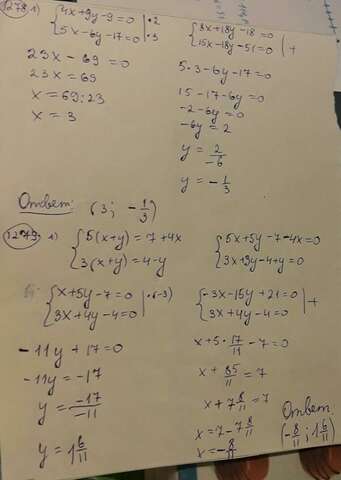 1278 1) { 4x+9y-9=0 |·2
5x-6y-17=0 |·3
{ 8x+18y-18=0
15x-18y-51=0 | +
23x - 69 = 0
23x = 69
x = 69:23
x = 3
5·3-6y-17=0
15-17-6y=0
-2-6y=0
-6y=2
y = 2/-6
y = -1/3
Ответ: (3; -1/3)
1279 1) { 5(x+y)=7+4x
3(x+y)=4-y
{ 5x+5y-7-4x=0
3x+3y-4+y=0
{ x+5y-7=0 |·(-3)
3x+4y-4=0
{ -3x-15y+21=0
3x+4y-4=0 | +
-11y+17=0
-11y=-17
y = -17/-11
y = 1 6/11
x+5·17/11-7=0
x+85/11=7
x+7 8/11=7
x=7-7 8/11
x=-8/11
Ответ:
(-8/11; 1 6/11)